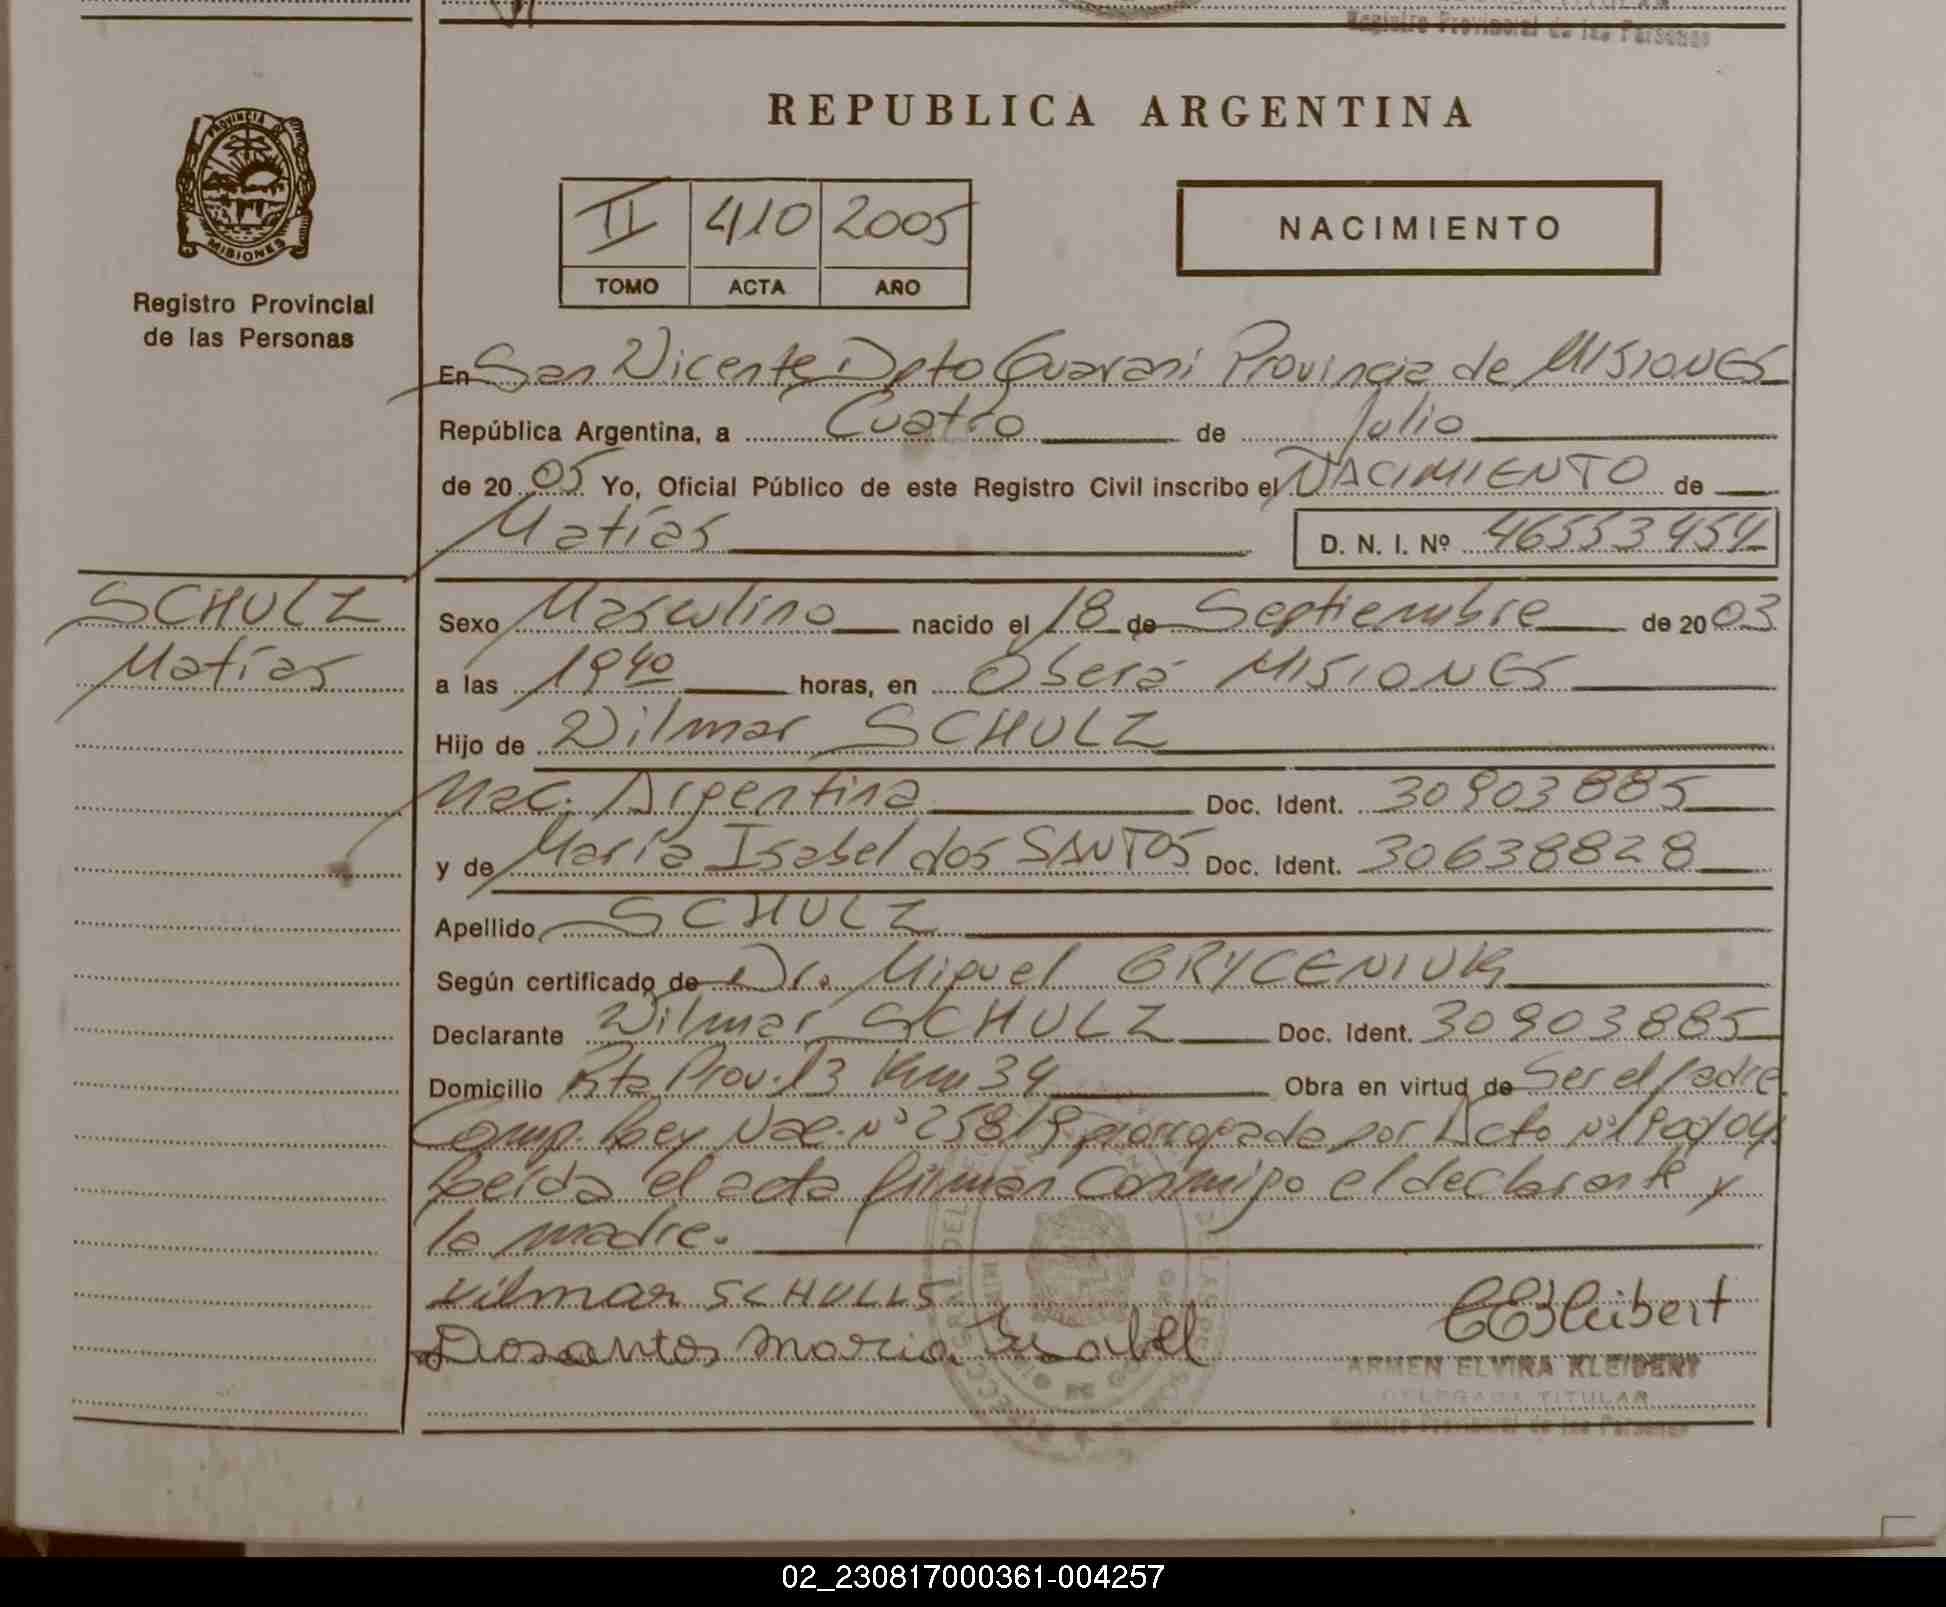 Registro Provincial de las Personas
PROVINCIA DE
MISIONES
Registro Provincial
de las Personas
REPUBLICA ARGENTINA
II 410 2005
TOMO ACTA AÑO
NACIMIENTO
En San Vicente Dpto Guaraní Provincia de MISIONES
República Argentina, a Cuatro de Julio
de 2005 Yo, Oficial Público de este Registro Civil inscribo el NACIMIENTO de
Matías D. N. I. Nº 46553454
SCHULZ
Matías
Sexo Masculino nacido el 18 de Septiembre de 2003
a las 19 40 horas, en Oberá MISIONES
Hijo de Wilmar SCHULZ
Nac. Argentina Doc. Ident. 30903885
y de María Isabel dos SANTOS Doc. Ident. 30638828
Apellido SCHULZ
Según certificado de Dr. Miguel GRYCENIUK
Declarante Wilmar SCHULZ Doc. Ident. 30903885
Domicilio Rta Prov. 13 Km 34 Obra en virtud de Ser el padre.
Comp. Ley Nac. nº 25819 prorrogada por Dcto nº
Leída el acta firman conmigo el declarante y
la madre.
Vilmar SCHULLS
Dosantos Maria Isabel
Kleibert
ARMEN ELVIRA KLEIBERT
DELEGADA TITULAR
Registro Provincial de las Personas
02_230817000361-004257